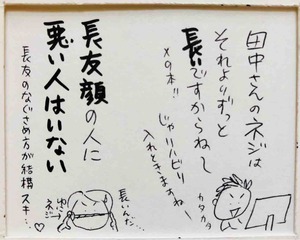 田中さんのネジは
それよりずっと
長いですからね〜
×9本!!
じゃリハビリ
入れときますね〜
カタカタ
長いんだ…
ゆに
ネジ→
長友顔の人に
悪い人はいない
長友のなぐさめ方が結構スキ…♡